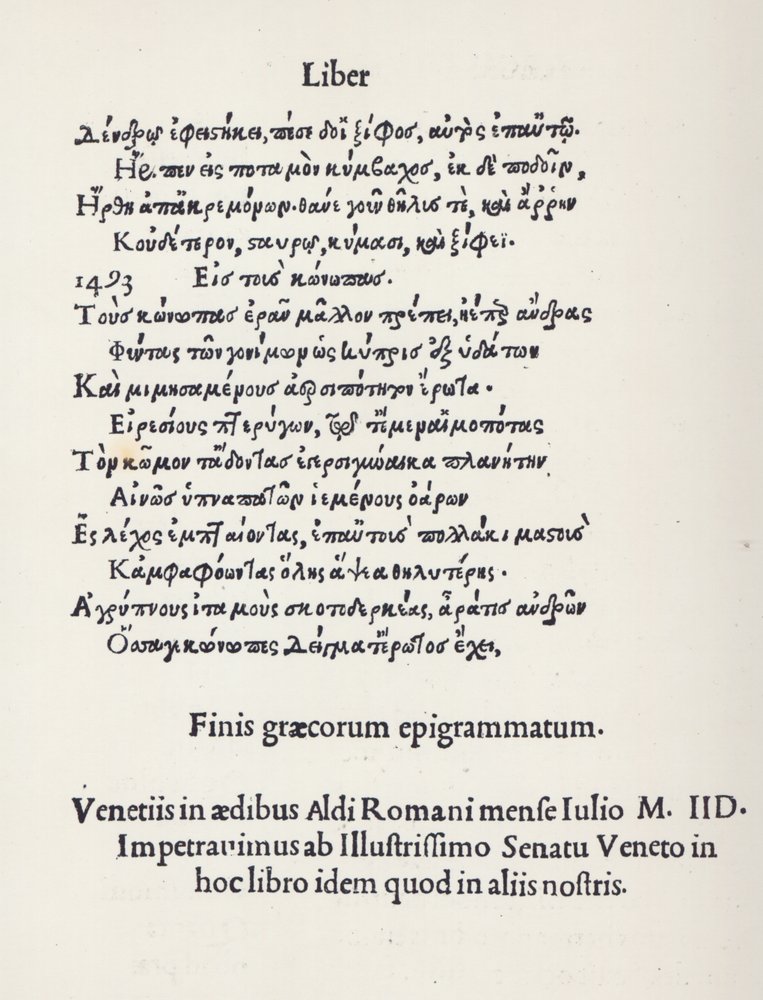 Liber
Δένδρῳ ἐφεισήκει, πέσε δοἵ ξίφος, αὐτὸς ἐπαὔτῷ.
Ἤριπεν εἰς ποταμὸν κύμβαχος, ἐκ δὲ ποδοῖν,
Ἤρθη ἀπαἲ κρεμόμων. θάνε γοῦν θῆλίς τὲ, καὶ ἄῤῥην
Κουδέτερον, σαυρῷ, κύμασι, καὶ ξίφεϊ.
1493 Εἰς τοὺς κώνωπας.
Τοὺς κώνωπας ἐρᾶν μᾶλλον πρέπει, ἠέπερ ἄνδρας
Φύντας τῶν γονίμων ὡς κύπρις ἐξ ὑδάτων
Καὶ μιμησαμένους ἀερσιπότητον ἔρωτα.
Εἰρεσίους πτερύγων,
Τὸν κῶμον τ᾽ᾄδοντας ἐπερσιγύναικα πλανήτην
Αἰνῶς ὑπναπατῶν ἱεμένους ὀάρων
Ἒς λέχος ἐμπταίοντας, ἐπαὔτοις πολλάκι μαστοῖς
Κἀμφαφόωντας ὅλης ἅψεα θηλυτέρης.
Ἀγρύπνους ἰταμοὺς σκοτοδερκέας, ἆρά τις ἀνδρῶν
Ὅσσαγε κώνωπες δείγματ᾽ ἔρωτος ἔχει,
Finis græcorum epigrammatum.
Venetiis in ædibus Aldi Romani menſe Iulio M. IID.
Impetrauimus ab Illuſtriſſimo Senatu Veneto in
hoc libro idem quod in aliis noſtris.